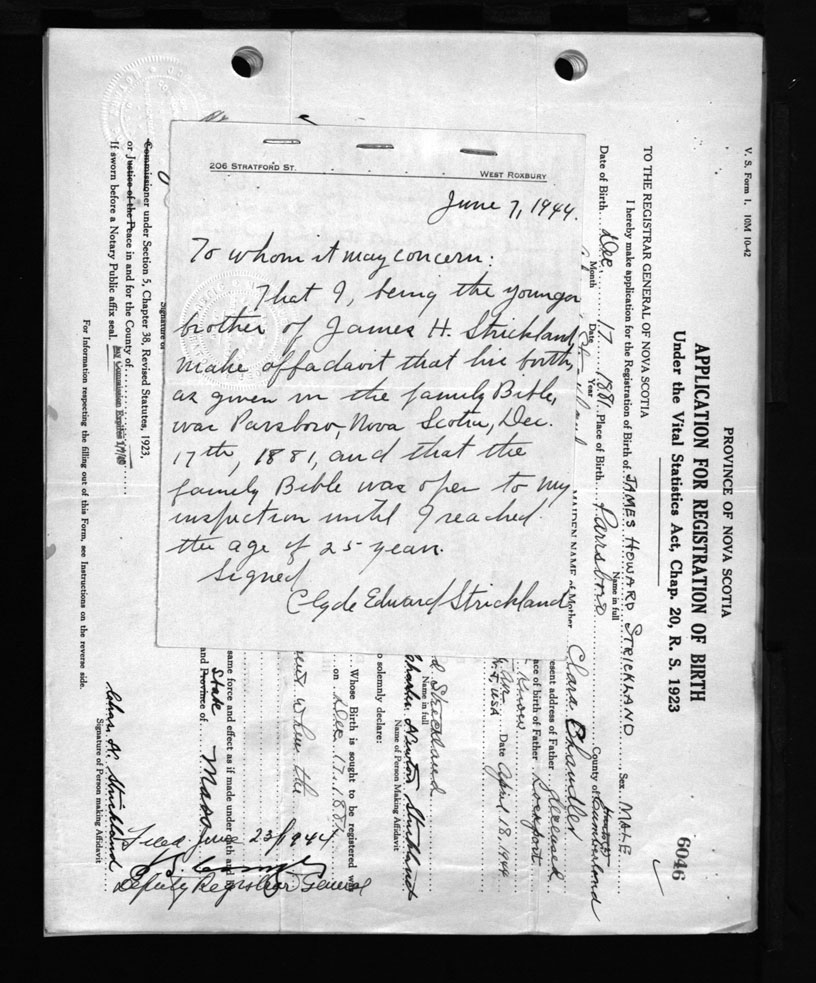 206 STRATFORD ST.
WEST ROXBURY
June 7, 1944.
To whom it may concern:
That I, being the younger
brother of James H. Strickland,
make affadavit that his birth,
as given in the family Bible,
was Parsboro, Nova Scotia, Dec.
17th, 1881, and that the
family Bible was open to my
inspection until I reached
the age of 25 years.
Signed
Clyde Edward Strickland
V. S. Form 1. 10M 10-42
PROVINCE OF NOVA SCOTIA
APPLICATION FOR REGISTRATION OF BIRTH
Under the Vital Statistics Act, Chap. 20, R. S. 1923
6046
TO THE REGISTRAR GENERAL OF NOVA SCOTIA
I hereby make application for the Registration of Birth of JAMES HOWARD STRICKLAND Sex MALE
Name in full
Date of Birth Dec 17 1881 Place of Birth Parrsboro County of Cumberland
Month Date Year
MAIDEN NAME of Mother Clara Chandler
resent address of Father deceased
ace of birth of Father Lockport
Date April 18, 1944
N.S., USA
d Strickland
Name in full
Charles Newton Strickland
Name of Person Making Affidavit
o solemnly declare:
Whose Birth is sought to be registered
on Dec 17. 1881
when the
same force and effect as if made under oath and
State
and Province of Mass
Signature of
Commissioner under Section 5, Chapter 38, Revised Statutes, 1923,
or Justice of the Peace in and for the County of
My Commission Expires
If sworn before a Notary Public affix seal.
Chas. N. Strickland
Signature of Person making Affidavit
For Information respecting the filling out of this Form, see Instructions on the reverse side.
Filed June 23/1944
Deputy Registrar General